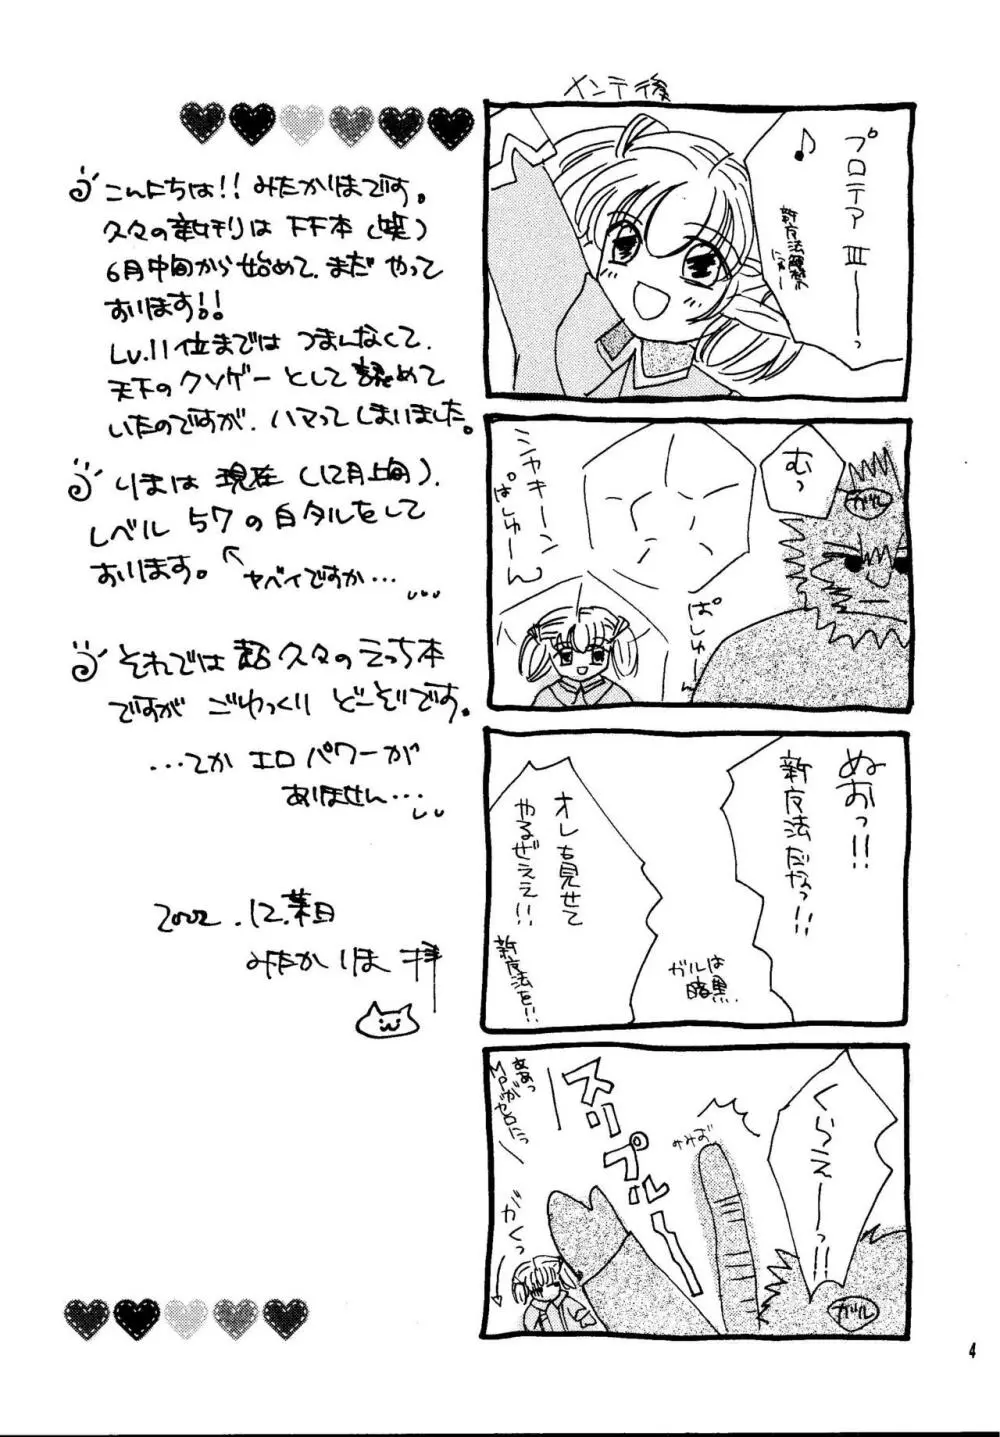 こんにちは!! みたかりほです。
久々の新刊はFF本(笑)
6月中旬から始めて、まだやって
おります!!
Lv.11位までは つまんなくて、
天下のクソゲーとして認めて
いたのですが、ハマってしまいました。
りほは 現在(12月上旬)、
レベル 57の白タルをして
おります。
ヤバイですか…
それでは超久々のえっち本
ですが ごゆっくり どーぞです。
…てか エロパワーが
ありません…
2002.12.某日
みたかりほ 拝
メンテ後
プロテアⅢーっ
♪
新魔法解禁
むっ
ガル
シャキーン
ぱしゅーん
ぱしゅーん
ぬおっ!!
新魔法だなっ!!
オレも見せて
やるぜええ!!
新魔法を!!
ガルは
暗黒
くらえーっ!!
ガル
スリプルー
ああっ
MPが
ゼロにっ
がくっ
4